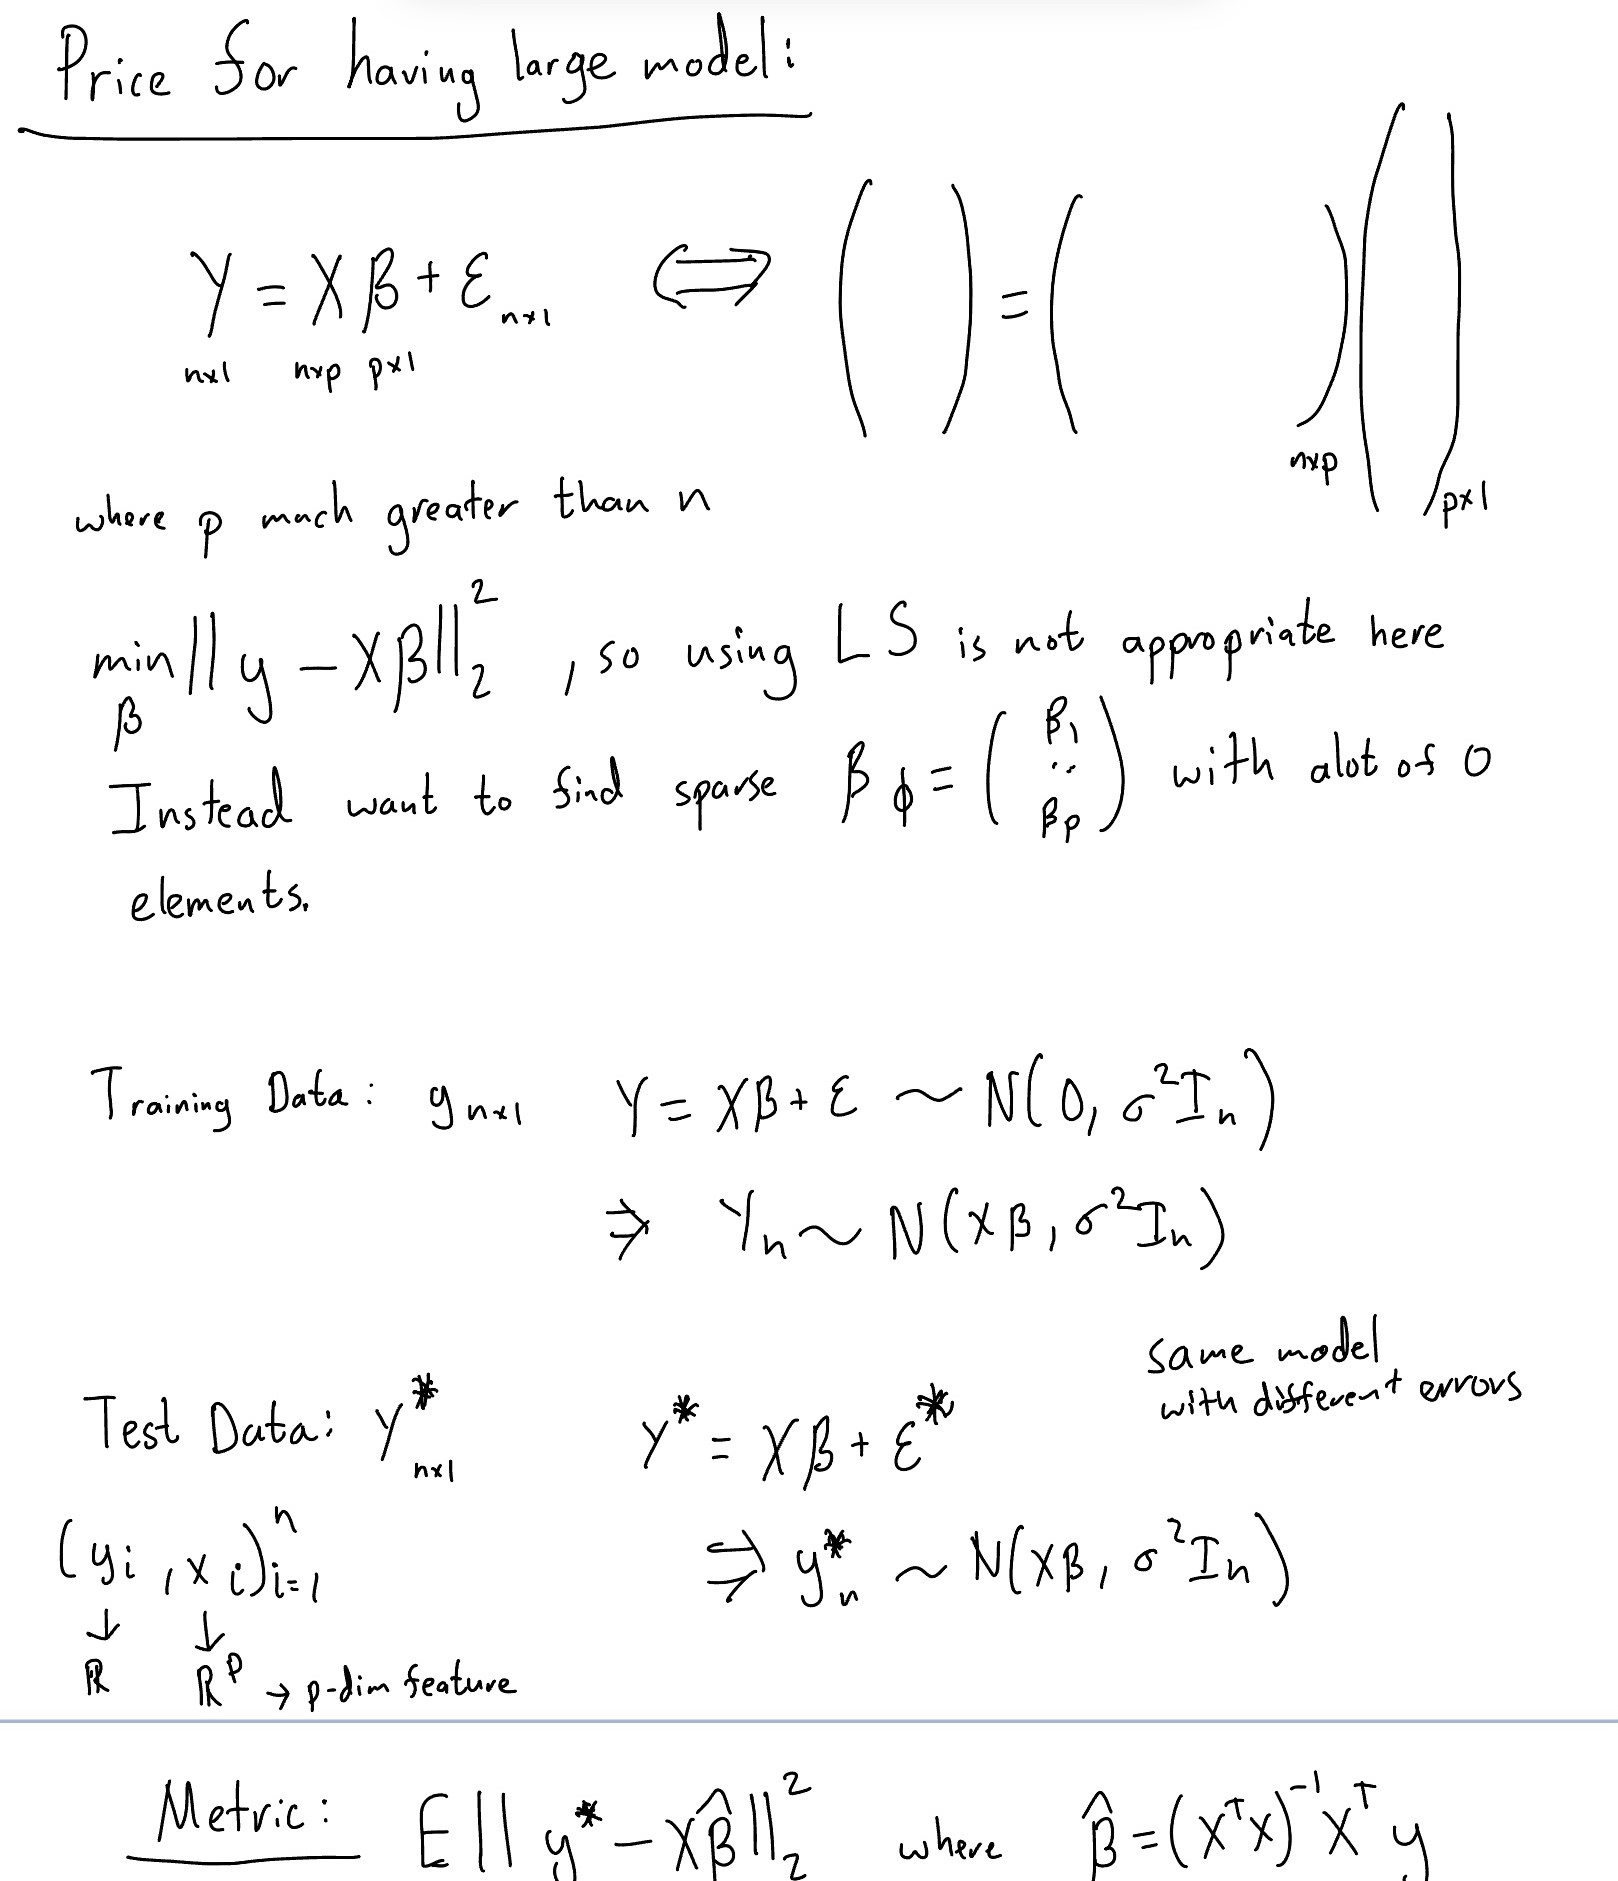 Price for having large model:
Y = Xβ + ε n×1 ⟺ ( ) = ( ) ( )
n×1 n×p p×1
n×p
p×1
where p much greater than n
min ‖y − Xβ‖₂² , so using LS is not appropriate here
β
Instead want to find sparse β ϕ = ( β₁ .. βp ) with alot of 0
elements.
Training Data: y n×1 Y = Xβ + ε ~ N(0, σ²Iₙ)
⇒ Yₙ ~ N(Xβ, σ²Iₙ)
same model
with different errors
Test Data: Y* n×1 Y* = Xβ + ε*
(yi, xi)ⁿi=1 ⇒ y*ₙ ~ N(Xβ, σ²Iₙ)
↓ ↓
ℝ ℝᵖ → p-dim feature
Metric: E‖y* − Xβ̂‖₂² where β̂ = (XᵀX)⁻¹Xᵀy